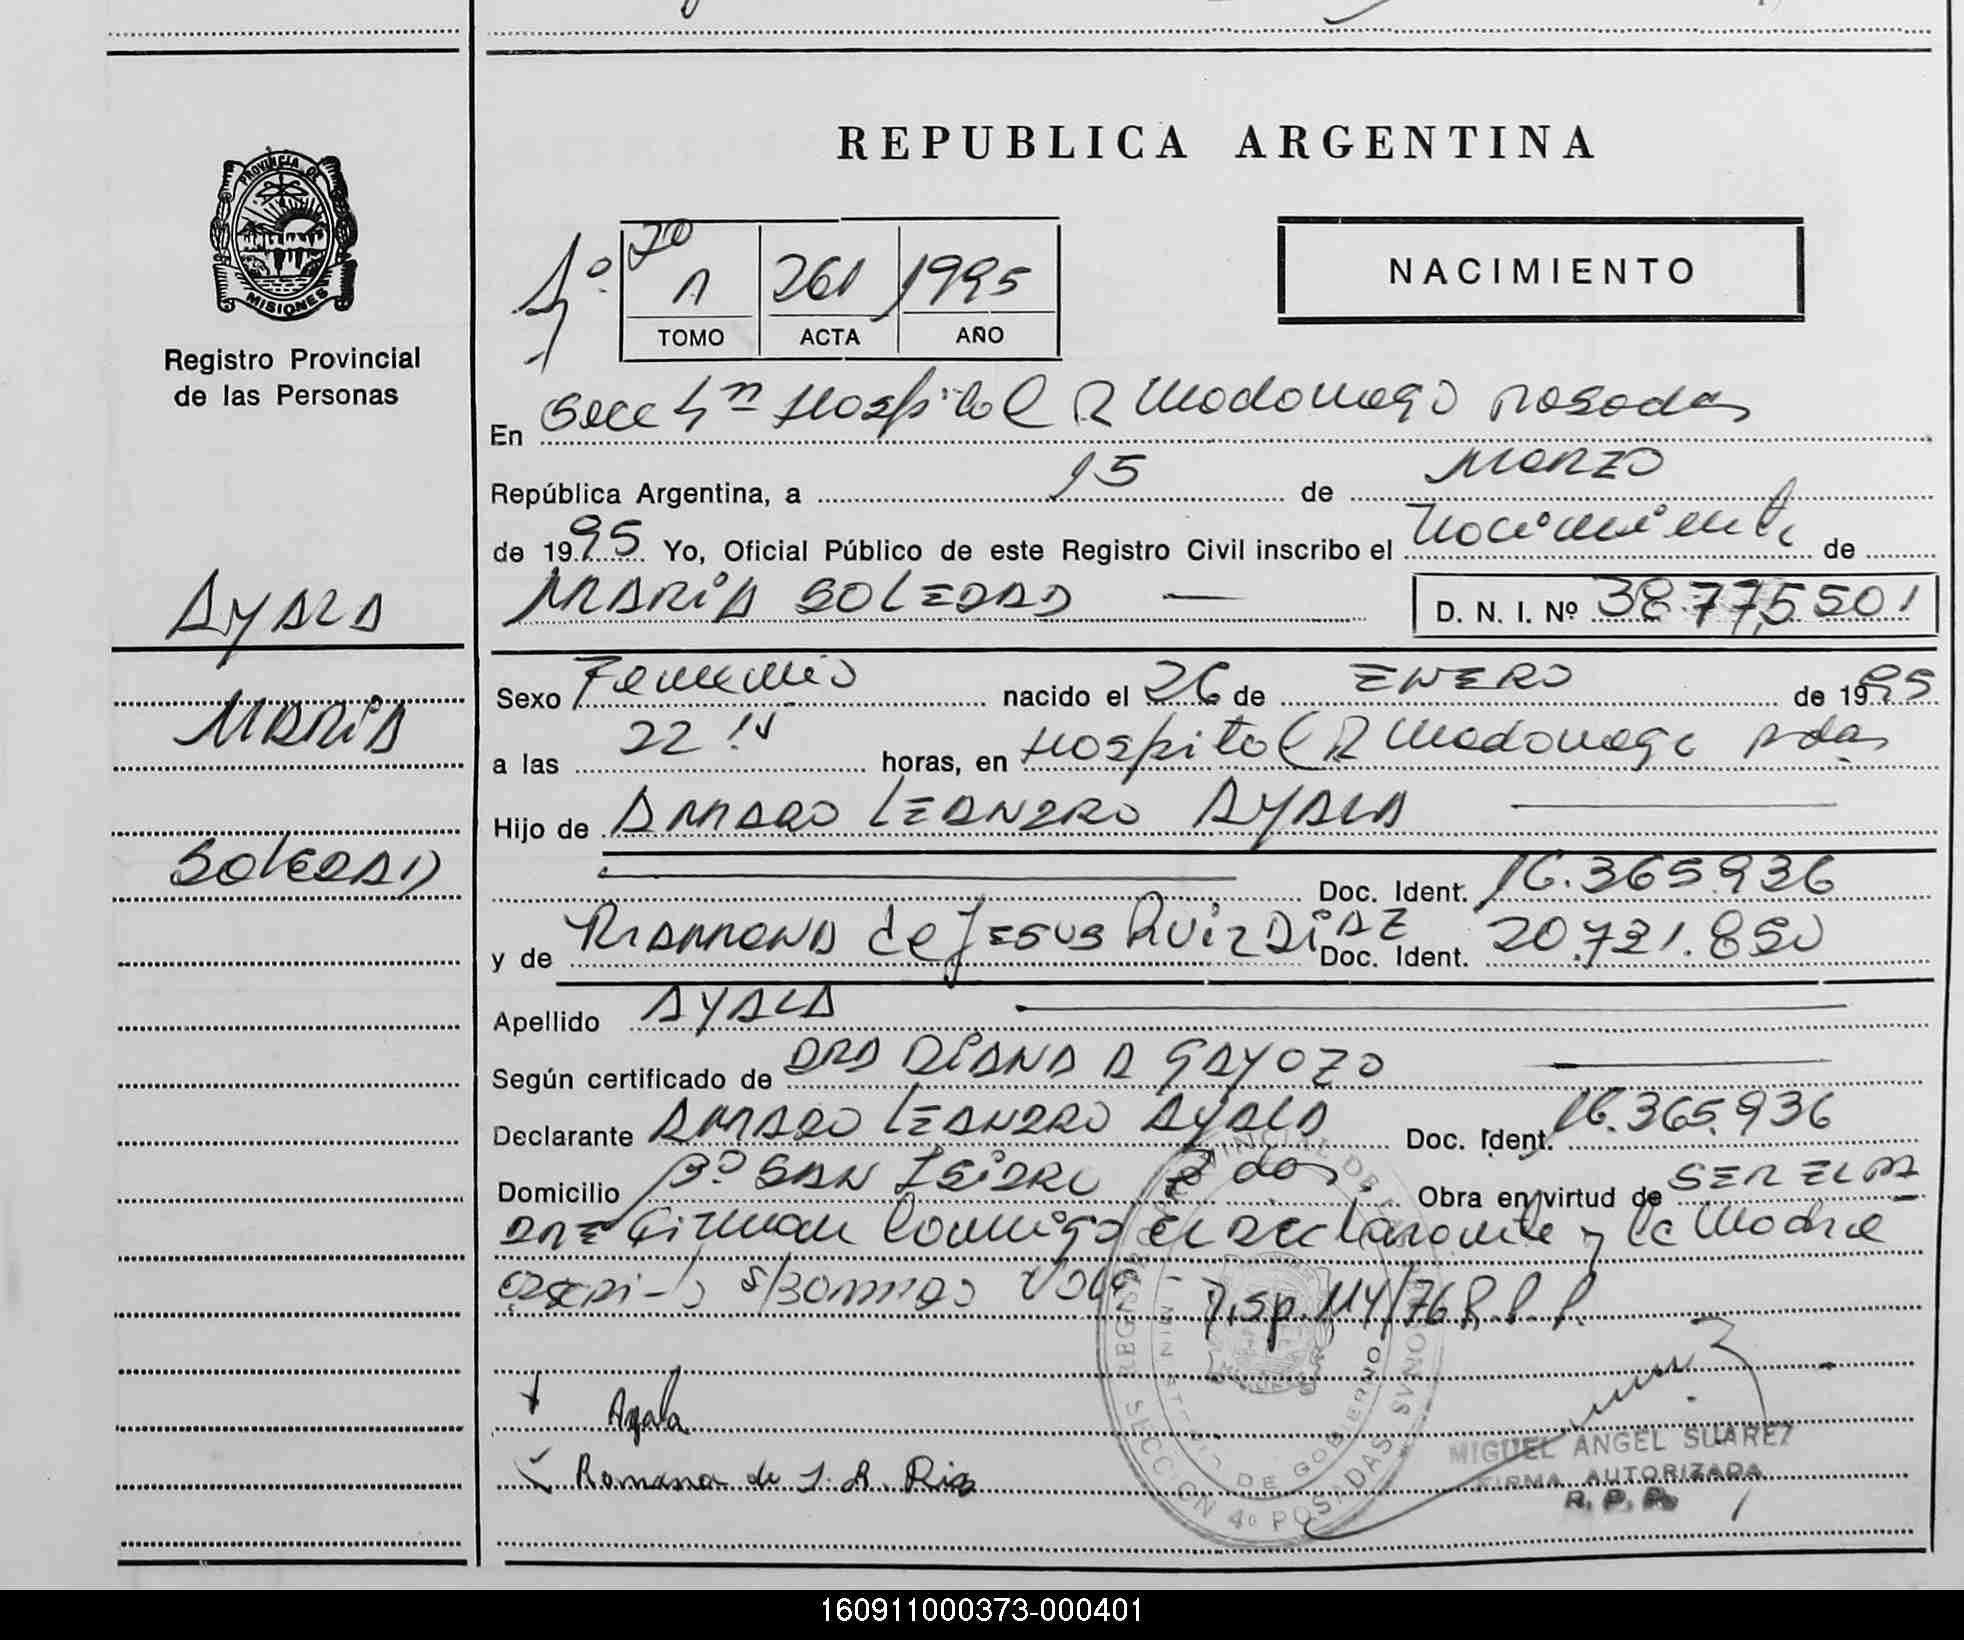 REPUBLICA ARGENTINA
PROVINCIA DE MISIONES
Registro Provincial
de las Personas
4º
TOMO 1 ACTA 261 AÑO 1995
NACIMIENTO
En Secc 4ta Hospital R Madariaga Posadas
República Argentina, a 15 de Marzo
de 1995 Yo, Oficial Público de este Registro Civil inscribo el Nacimiento de
MARIA SOLEDAD — D. N. I. Nº 38.775501
AYALA
MARIA
SOLEDAD
Sexo Femenino nacido el 26 de ENERO de 1995
a las 22 horas, en Hospital R Madariaga Pdas
Hijo de AMARO LEANDRO AYALA
Doc. Ident. 16.365.936
y de RAMONA de JESUS RUIZ DIAZ Doc. Ident. 20.721.850
Apellido AYALA
Según certificado de DRA DIANA A GAYOZO
Declarante AMARO LEANDRO AYALA Doc. Ident. 16.365.936
Domicilio Bº SAN ISIDRO Pdas. Obra en virtud de SER EL PA
DRE Firman Conmigo el Declarante y la Madre
Disp. 114/76 R.P.P.
Ayala
Ramona de J. R. Dias
REGISTRO PROVINCIAL DE LAS PERSONAS
MINISTERIO DE GOBIERNO
SECCION 4º POSADAS
MIGUEL ANGEL SUAREZ
FIRMA AUTORIZADA
R. P. P.
160911000373-000401